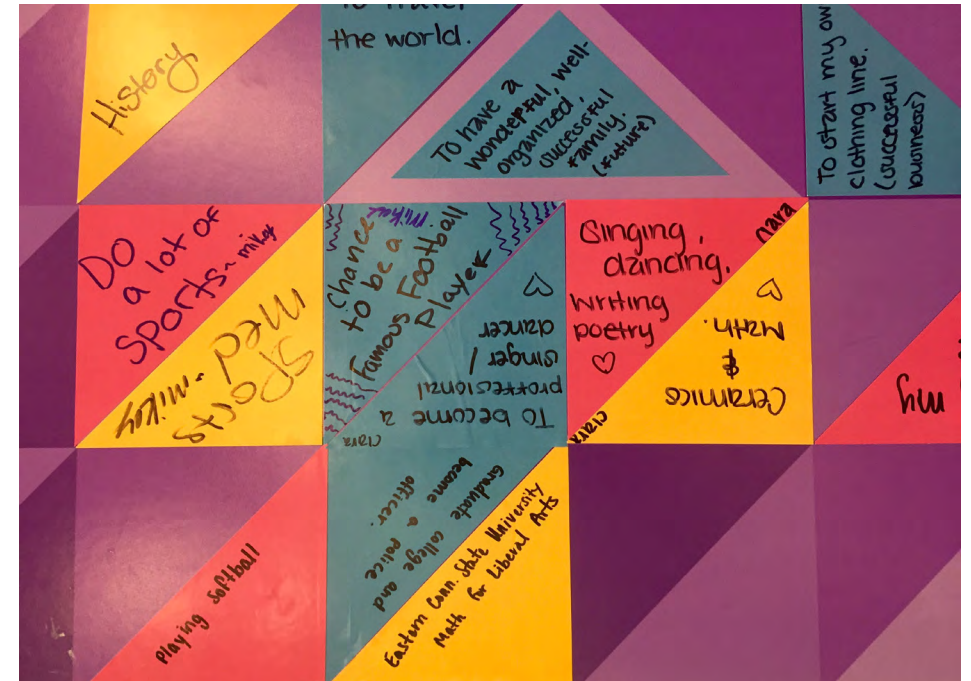 History
the world.
To have a
wonderful, well-
organized,
successful
family.
(future)
To start my ow
clothing line.
(successful
business)
DO
a lot of
sports ~ mikey
Sports
Med
~mikey
chance
to be a
Famous Football
Player
To become a
proffessional
singer /
dancer
♡
Clara
Singing,
dancing,
writing
poetry
♡
Clara
Ceramics
&
Math.
♡
my
Playing softball
Graduate college and
become a police
officer.
Eastern Conn. State University
Math for Liberal Arts